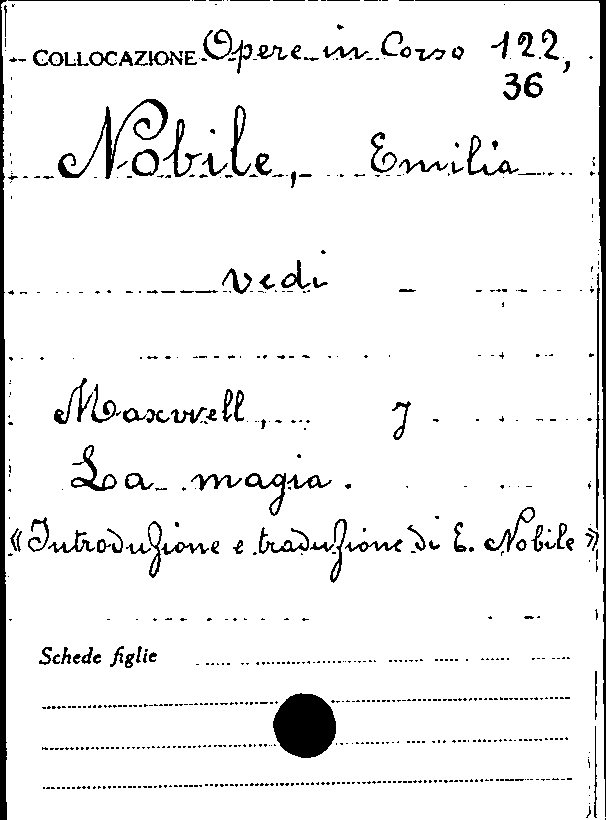 COLLOCAZIONE Opere in Corso 122,
36
Nobile, Emilia
vedi
Maxwell, J
La magia.
«Introduzione e traduzione di E. Nobile»
Schede figlie